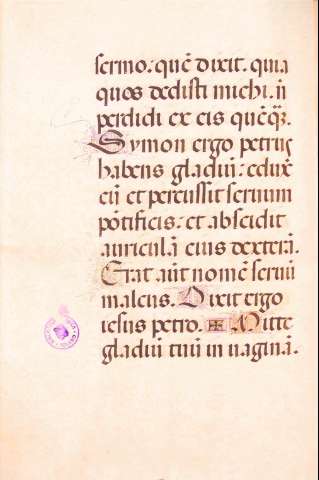 sermo. quē dixit. quia
quos dedisti michi. nō
perdidi ex eis quēq̄.
Symon ergo petrus
habens gladiū: eduxē
eū et percussit seruum
pōtificis: et abscidit
auriculā eius dexterā.
Erat aūt nomē serui
malcus. Dixit ergo
iesus petro. ✠ Mitte
gladiū tuū in uaginā.